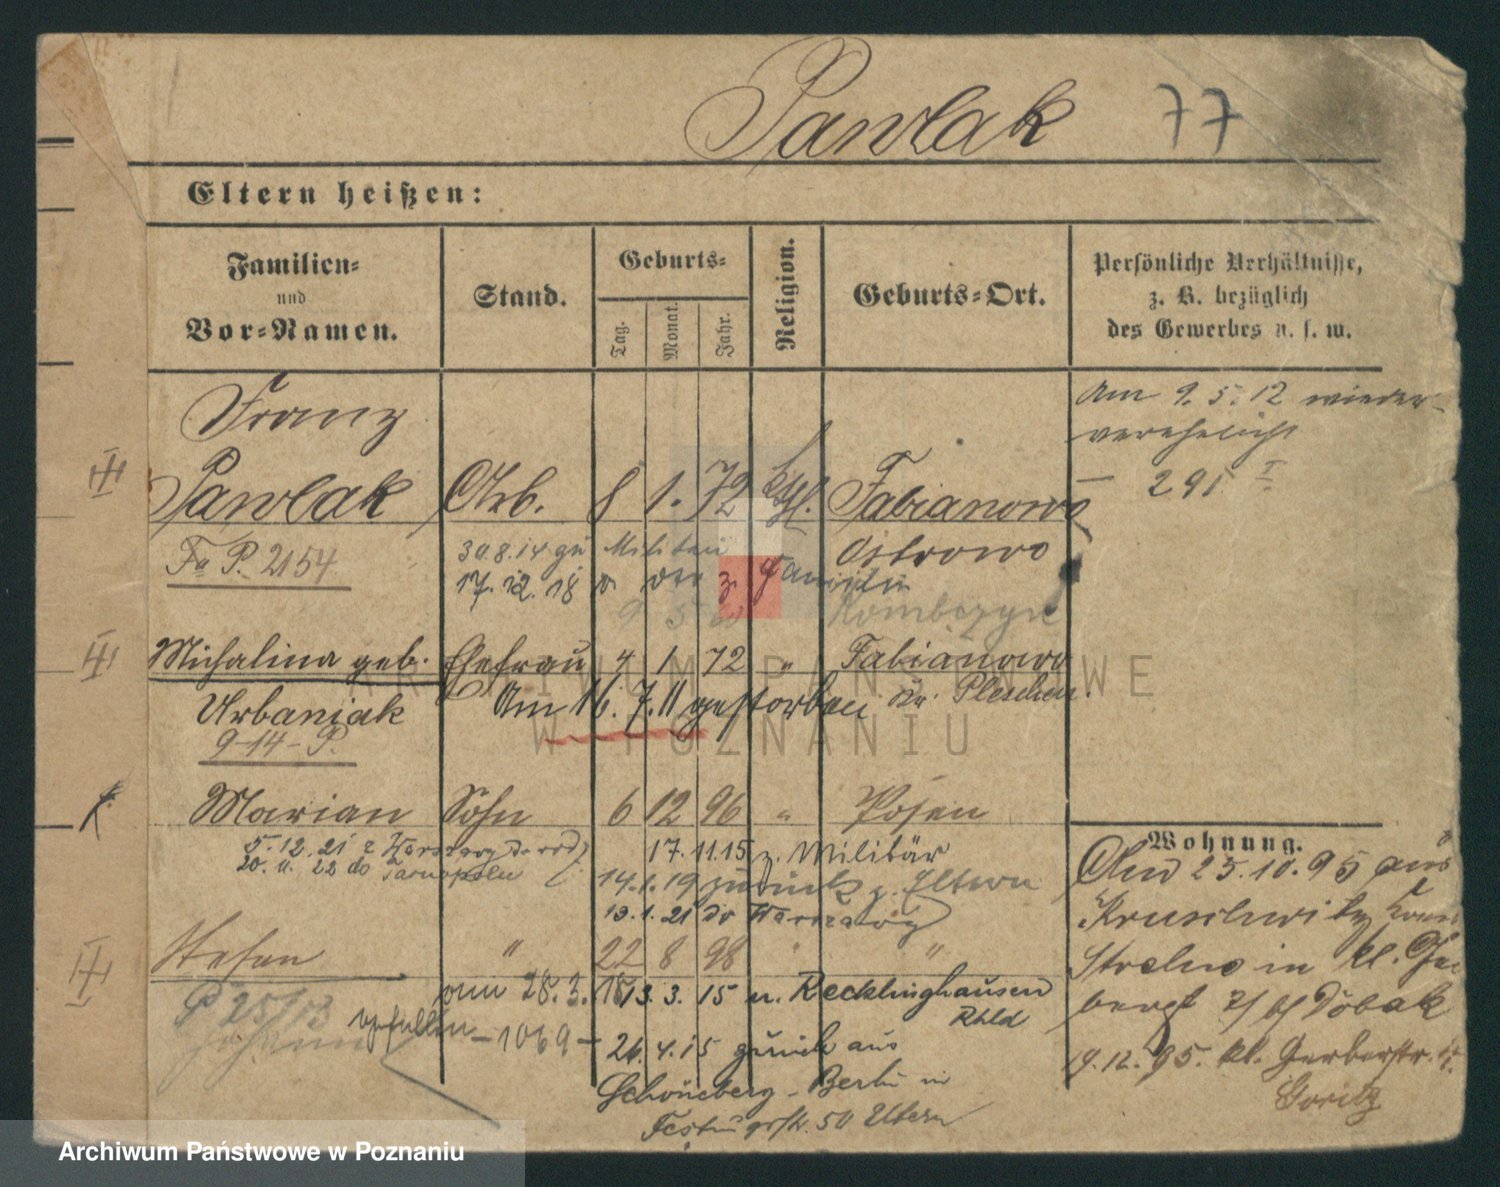 Pawlak 77
Eltern heißen:
Familien-
und
Vor-Namen.
Stand.
Geburts-
Tag.
Monat.
Jahr.
Religion.
Geburts-Ort.
Persönliche Verhältnisse,
z. B. bezüglich
des Gewerbes u. s. w.
Am 9.5.12 wieder-
verehelicht
291 I
Franz
Pawlak Arb. 8 1. 72 kth. Fabianowo
Fa P. 2154
30.8.14 zu Militär Ostrowo
17.12.18 v. z. Familie
Michalina geb. Ehefrau 4 1. 72 " Fabianowo
Urbaniak Am 16.7.11 gestorben Kr. Pleschen.
9-14-P.
Marian Sohn 6 12 96 " Posen
5.12.21 z Warszawy
20. 22 do Tarnopolu
17.11.15 z. Militär
14.1.19 zurück z. Eltern
19.1.21 do Warszawy
Stefan " 22 8 98 " "
P 25/13
am 28.3.16
-1069-
13.3.15 n. Recklinghausen
Rhld
24.4.15 zurück aus
Schöneberg-Berlin in
50 Eltern
Wohnung.
25.10.95 aus
Kruschwitz
Strelno in kl.
19.12.95. kl. Gerberstr.
Goritz
ARCHIWUM PAŃSTWOWE
W POZNANIU
Archiwum Państwowe w Poznaniu